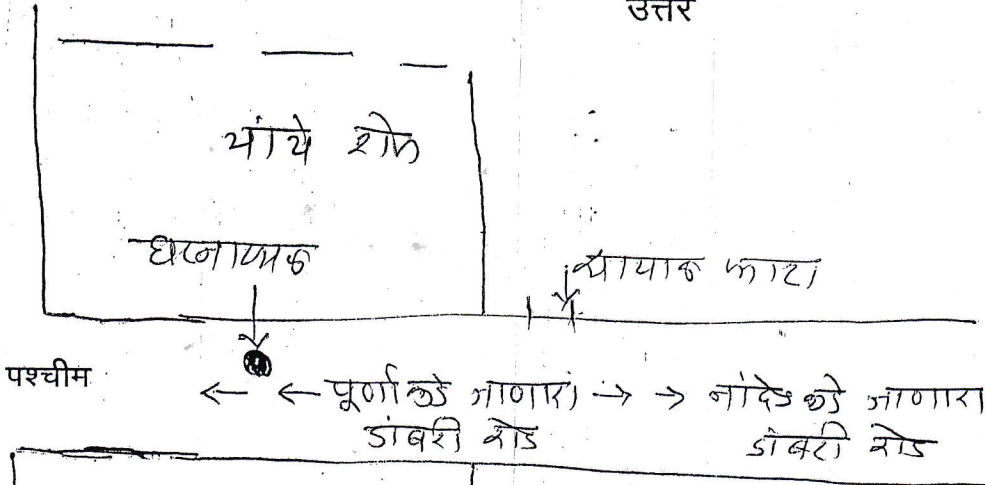 उत्तर
यांचे शेत
घटनास्थळ
फाटा
पश्चीम
← ← पूर्णाकडे जाणारा → → नांदेडकडे जाणारा
डांबरी रोड डांबरी रोड